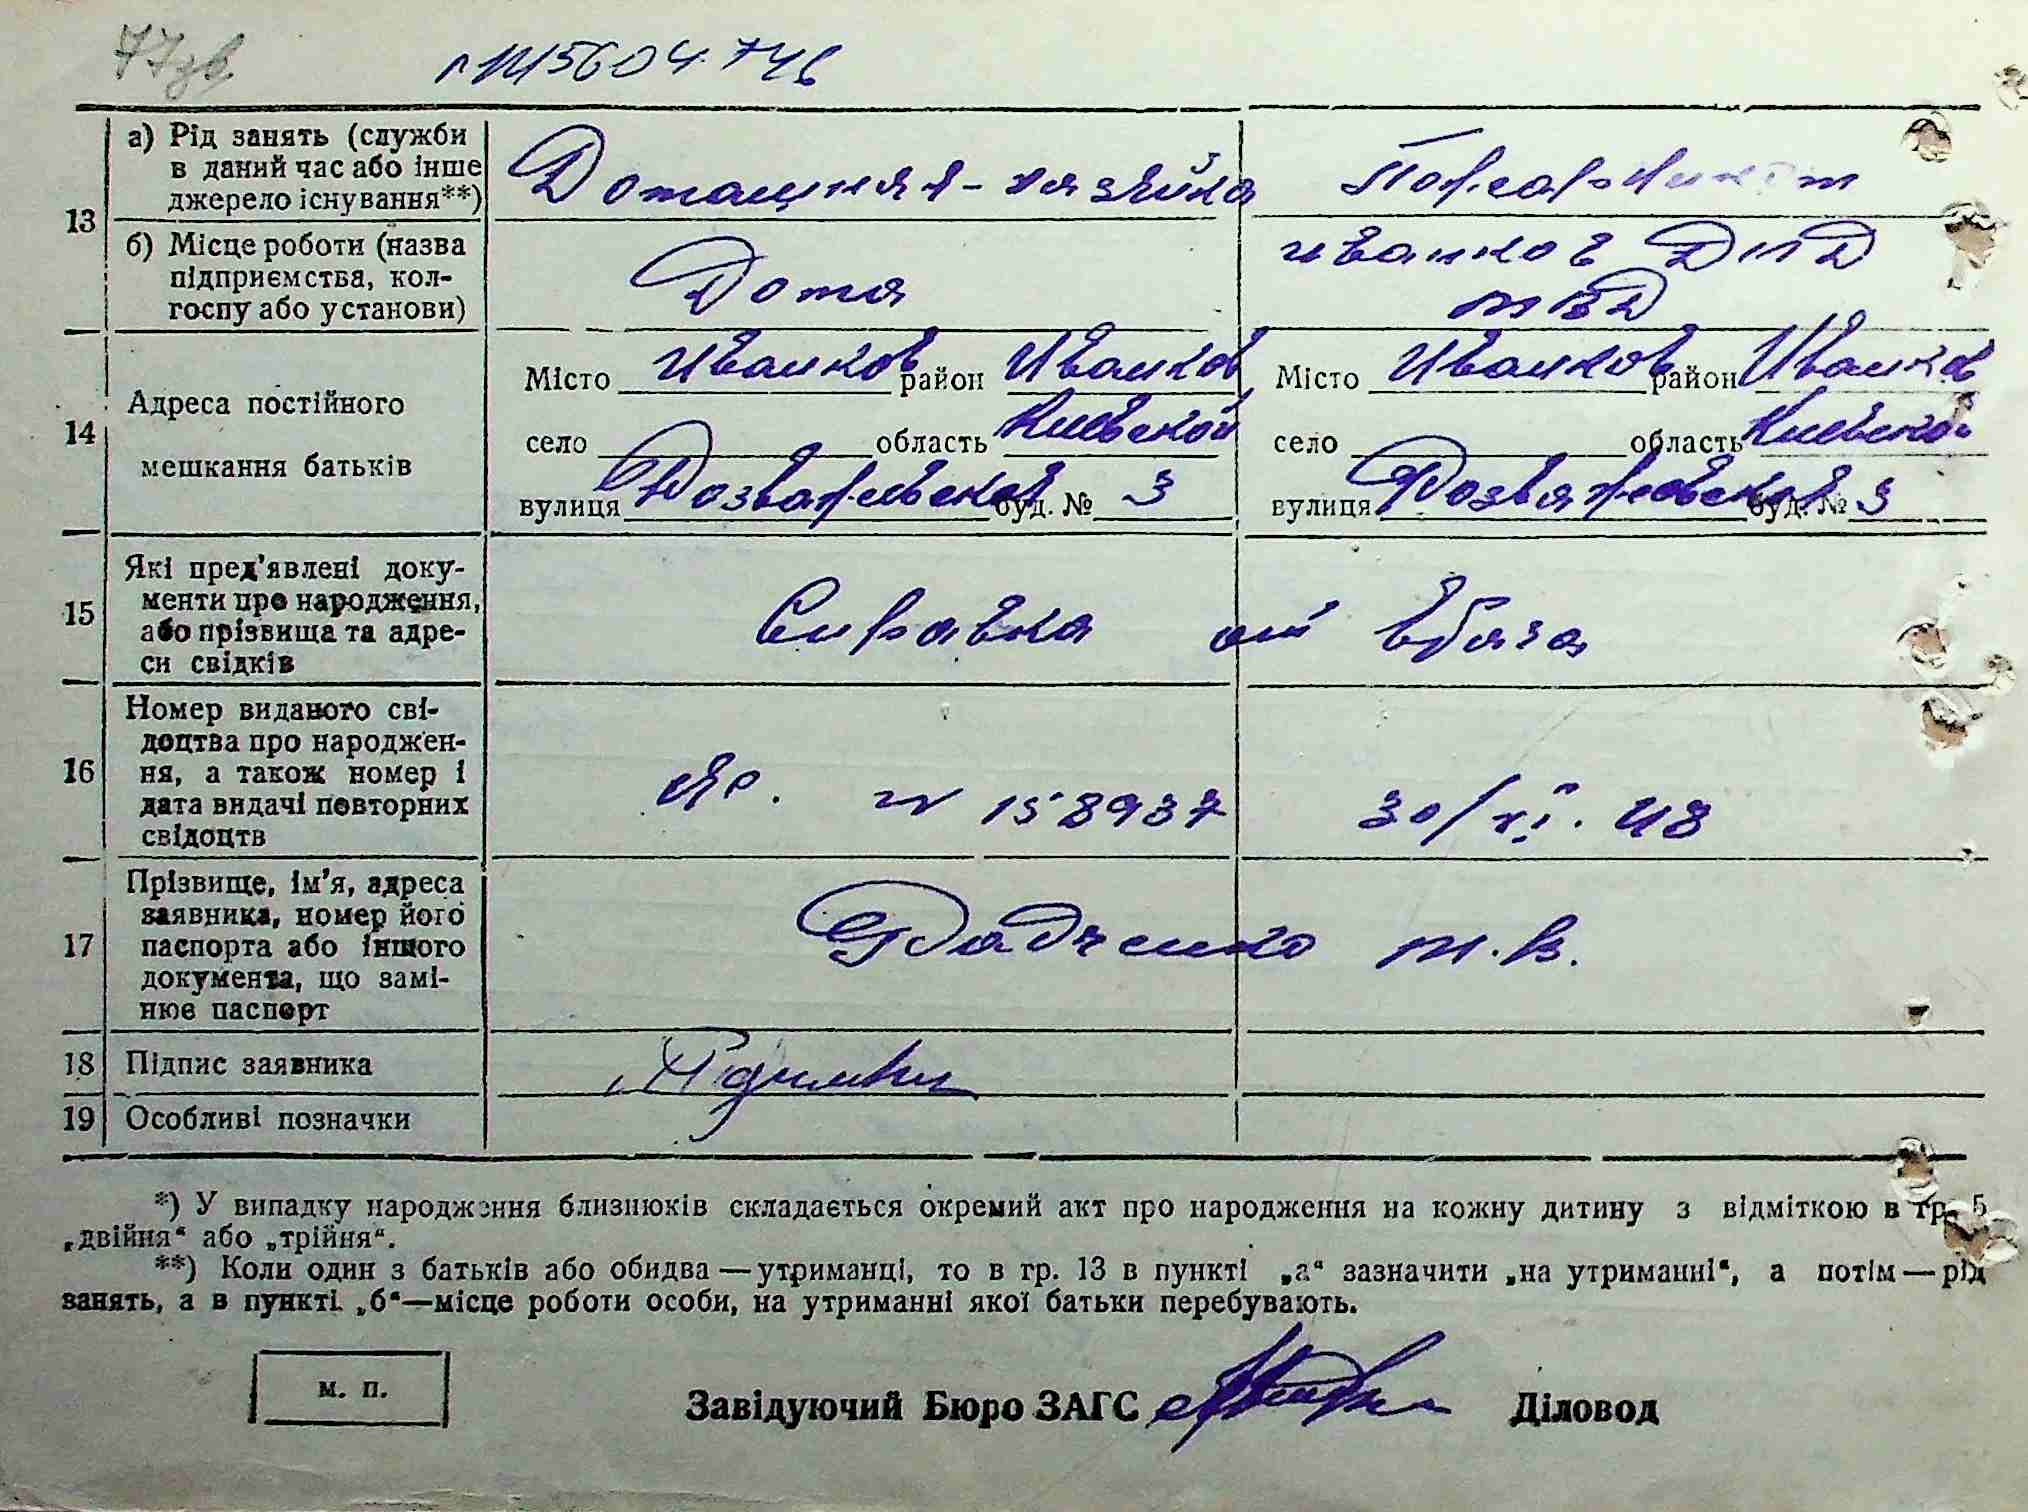 77зв
13
а) Рід занять (служби
в даний час або інше
джерело існування**)
Домашняя-хазяйка
б) Місце роботи (назва
підприємства, кол-
госпу або установи)
Дома
Иванков ДПД
МВД
14
Адреса постійного
мешкання батьків
Місто Иванков район Иванков
село область Киевской
вулиця Розважевская буд. № 3
Місто Иванков район Иванков
село область Киевской
вулиця Розважевская буд. № 3
15
Які пред’явлені доку-
менти про народження,
або прізвища та адре-
си свідків
Справка от врача
16
Номер виданого сві-
доцтва про народжен-
ня, а також номер і
дата видачі повторних
свідоцтв
№ 158937 30/XI. 48
17
Прізвище, ім’я, адреса
заявника, номер його
паспорта або іншого
документа, що замі-
нює паспорт
Радченко М.В.
18 Підпис заявника
19 Особливі позначки
*) У випадку народження близнюків складається окремий акт про народження на кожну дитину з відміткою в гр. 5
„двійня“ або „трійня“.
**) Коли один з батьків або обидва — утриманці, то в гр. 13 в пункті „а“ зазначити „на утриманні“, а потім — рід
занять, а в пункті „б“—місце роботи особи, на утриманні якої батьки перебувають.
м. п.
Завідуючий Бюро ЗАГС Діловод